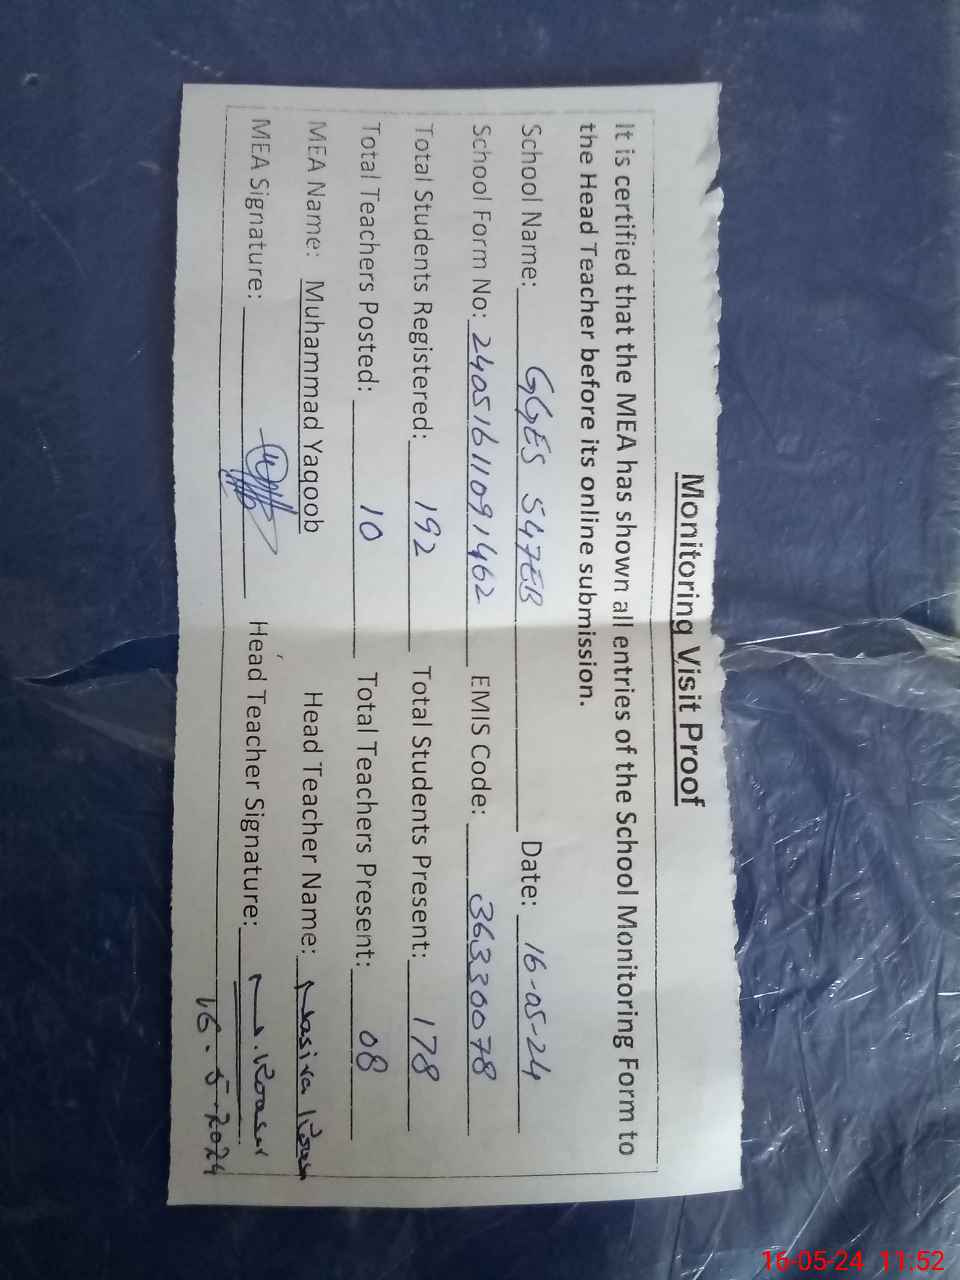 Monitoring Visit Proof
It is certified that the MEA has shown all entries of the School Monitoring Form to
the Head Teacher before its online submission.
School Name: GGES 547EB Date: 16-05-24
School Form No: 24051611091462 EMIS Code: 36330078
Total Students Registered: 192 Total Students Present: 178
Total Teachers Posted: 10 Total Teachers Present: 08
MEA Name: Muhammad Yaqoob Head Teacher Name: Nasira
MEA Signature: Head Teacher Signature:
16-5-2024
16-05-24 11:52